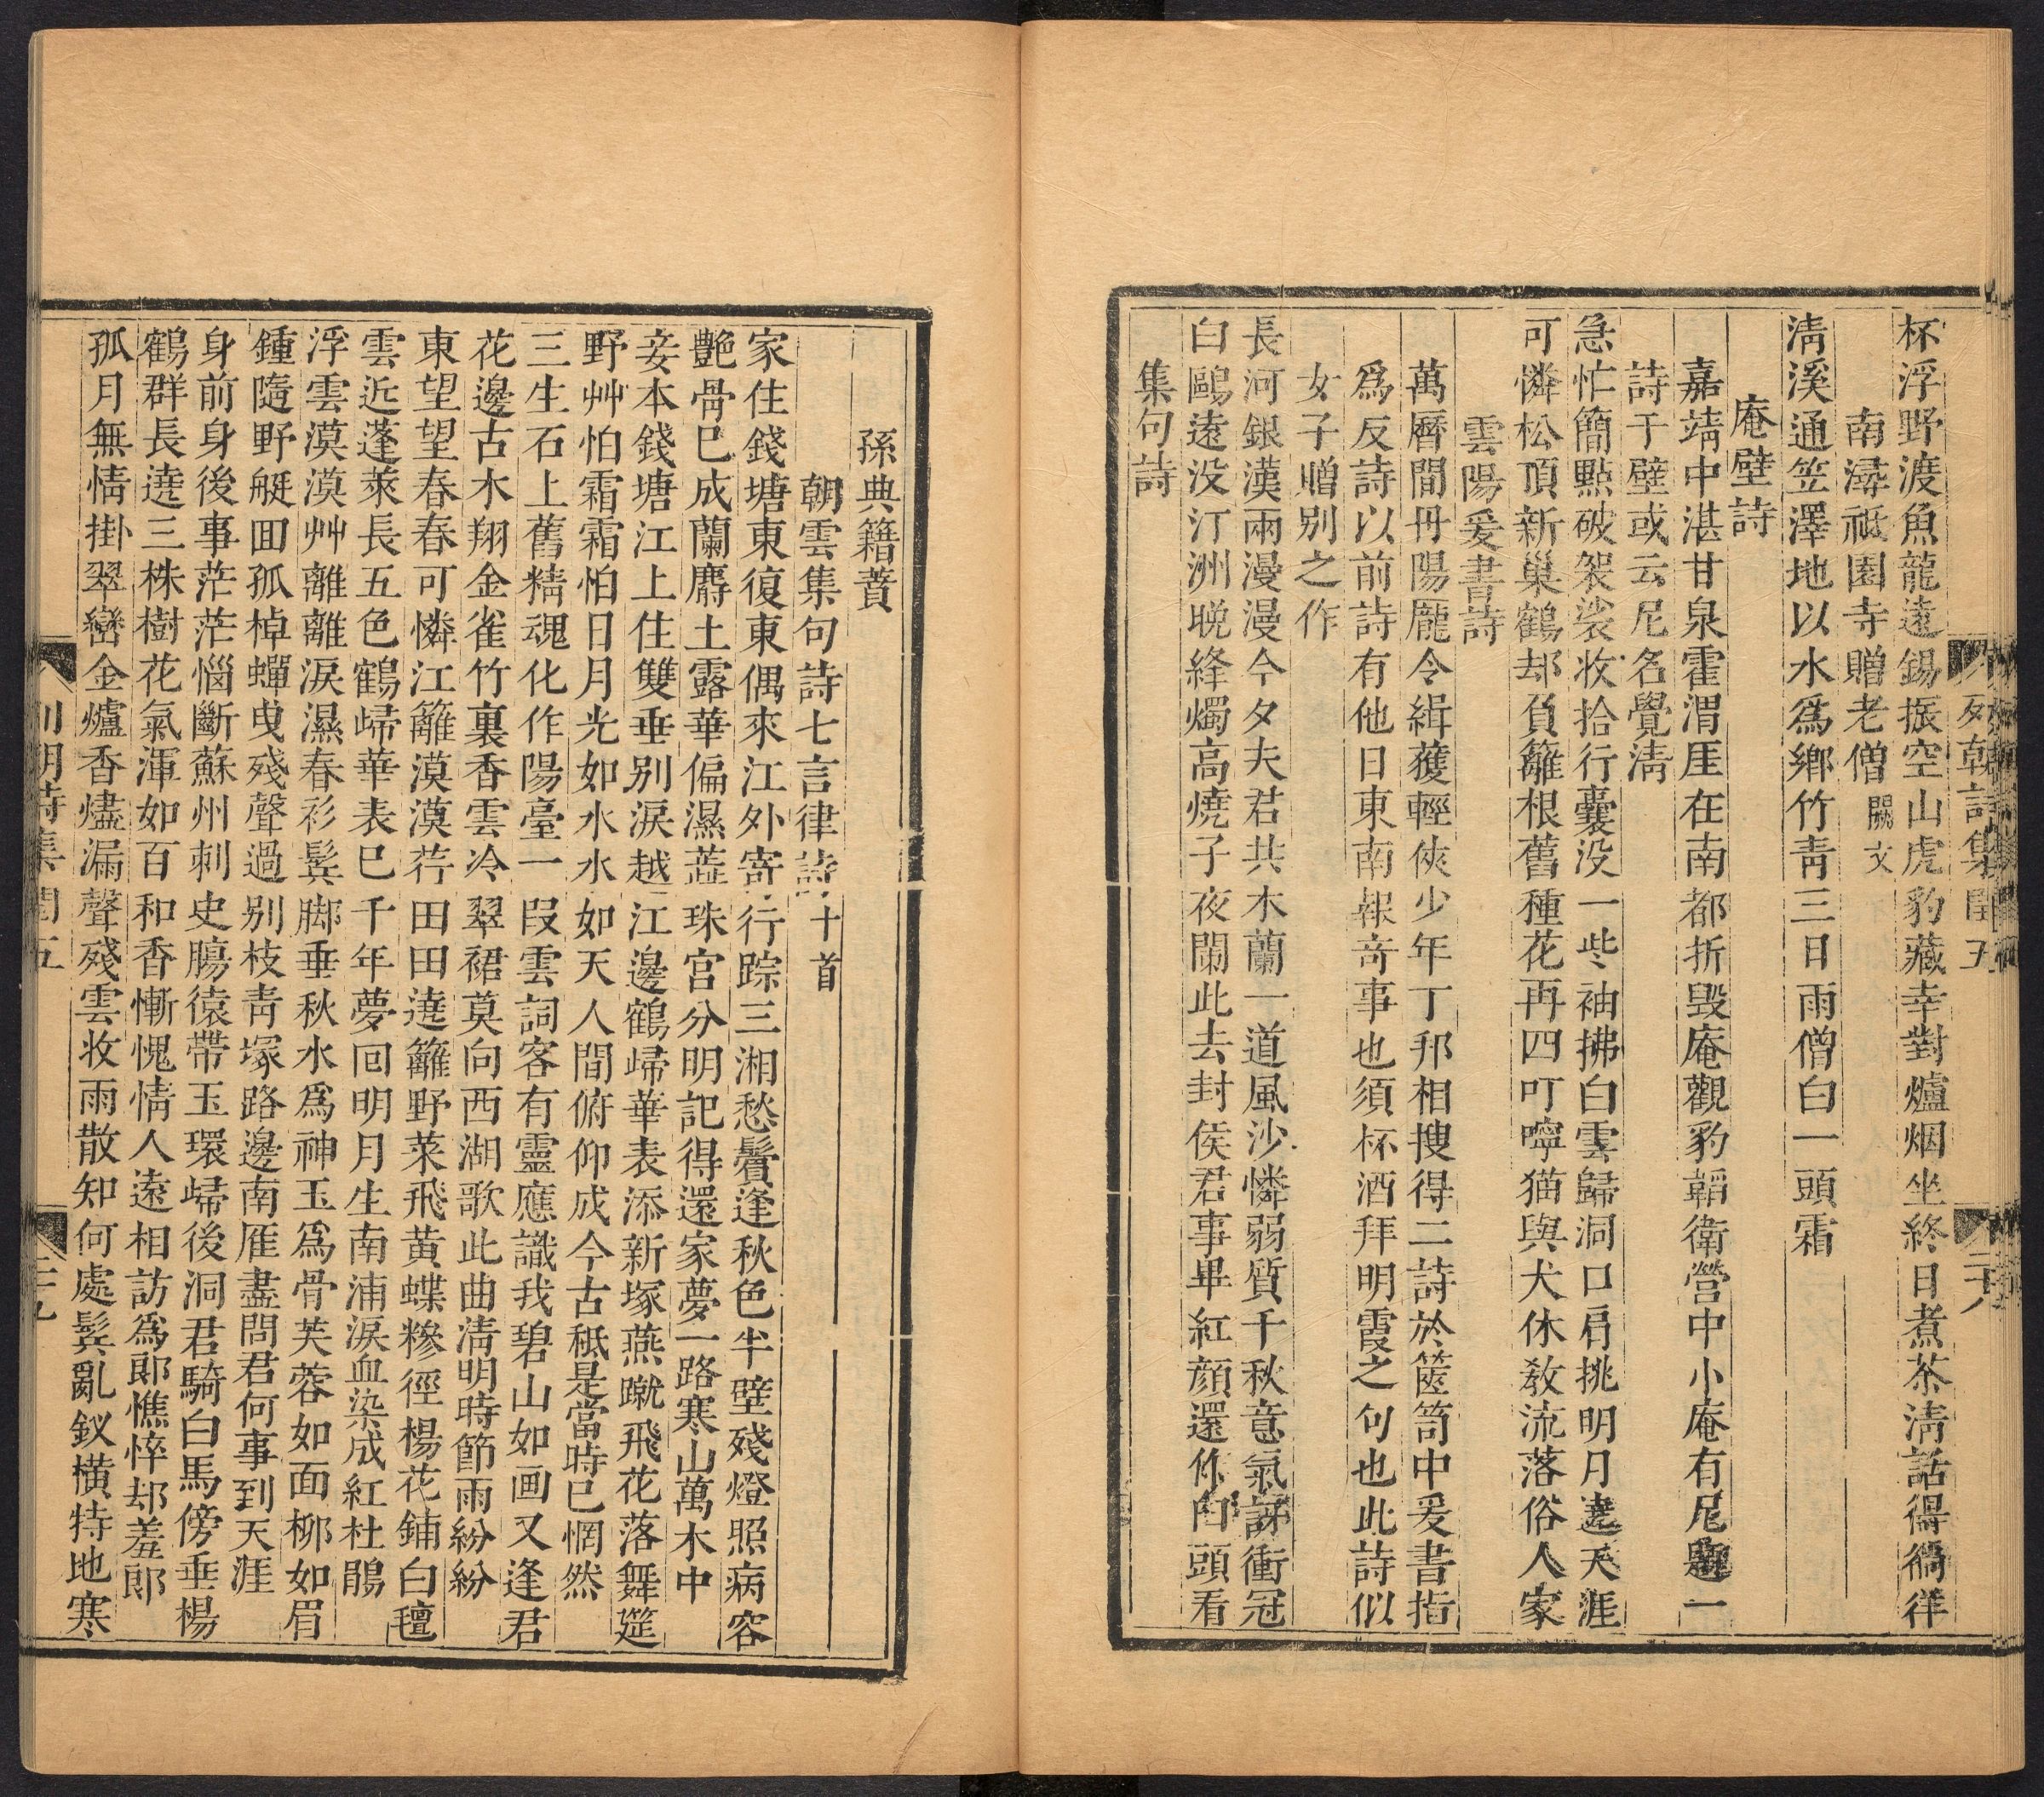 列朝詩集閏五
二十八
杯浮野渡魚龍遠錫振空山虎豹藏幸對爐烟坐終日煮茶淸話得徜徉
南潯祗園寺贈老僧闕文
淸溪通笠澤地以水爲鄉竹靑三日雨僧白一頭霜
庵壁詩
嘉靖中湛甘泉霍渭厓在南都折毀庵觀豹韜衛營中小庵有尼題一
詩于壁或云尼名覺淸
急忙簡點破袈裟收拾行囊没一些袖拂白雲歸洞口肩挑明月遶天涯
可憐松頂新巢鶴却負籬根舊種花再四叮嚀猫與犬休敎流落俗人家
雲陽爰書詩
萬曆間丹陽龐令緝獲輕俠少年丁邦相搜得二詩於篋笥中爰書指
爲反詩以前詩有他日東南報奇事也須杯酒拜明霞之句也此詩似
女子贈别之作
長河銀漢兩漫漫今夕夫君共木蘭一道風沙憐弱質千秋意氣訝衝冠
白鷗遠没汀洲晚絳燭高燒子夜闌此去封侯君事畢紅顔還你白頭看
集句詩
孫典籍蕡
朝雲集句詩七言律詩十首
家住錢塘東復東偶來江外寄行踪三湘愁鬢逢秋色半壁殘燈照病容
艷骨已成蘭麝土露華偏濕蕋珠宫分明記得還家夢一路寒山萬木中
妾本錢塘江上住雙垂别淚越江邊鶴歸華表添新塚燕蹴飛花落舞筵
野艸怕霜霜怕日月光如水水如天人間俯仰成今古秪是當時已惘然
三生石上舊精魂化作陽臺一叚雲詞客有靈應識我碧山如画又逢君
花邊古木翔金雀竹裏香雲冷翠裙莫向西湖歌此曲淸明時節雨紛紛
東望望春春可憐江籬漠漠荇田田遶籬野菜飛黄蝶糝徑楊花鋪白氊
雲近蓬萊長五色鶴歸華表已千年夢囘明月生南浦淚血染成紅杜鵑
浮雲漠漠艸離離淚濕春衫鬂脚垂秋水爲神玉爲骨芙蓉如面柳如眉
鍾隨野艇囘孤棹蟬曳殘聲過别枝靑塚路邊南雁盡問君何事到天涯
身前身後事茫茫惱斷蘇州刺史膓猿帶玉環歸後洞君騎白馬傍垂楊
鶴群長遶三株樹花氣渾如百和香慚愧情人遠相訪爲郞憔悴却羞郞
孤月無情掛翠巒金爐香燼漏聲殘雲收雨散知何處鬂亂釵橫特地寒
列朝詩集閏五
二十九